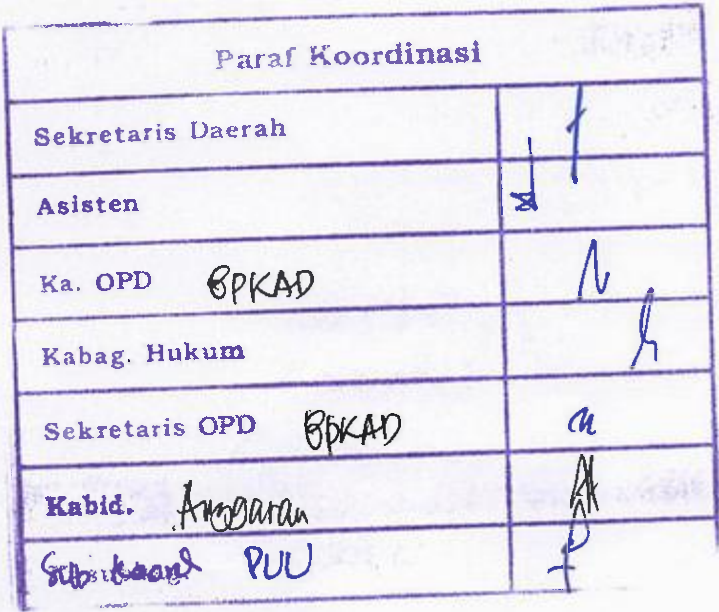 Paraf Koordinasi
Sekretaris Daerah
Asisten
Ka. OPD BPKAD
Kabag. Hukum
Sekretaris OPD BPKAD
Kabid. Anggaran
PUU